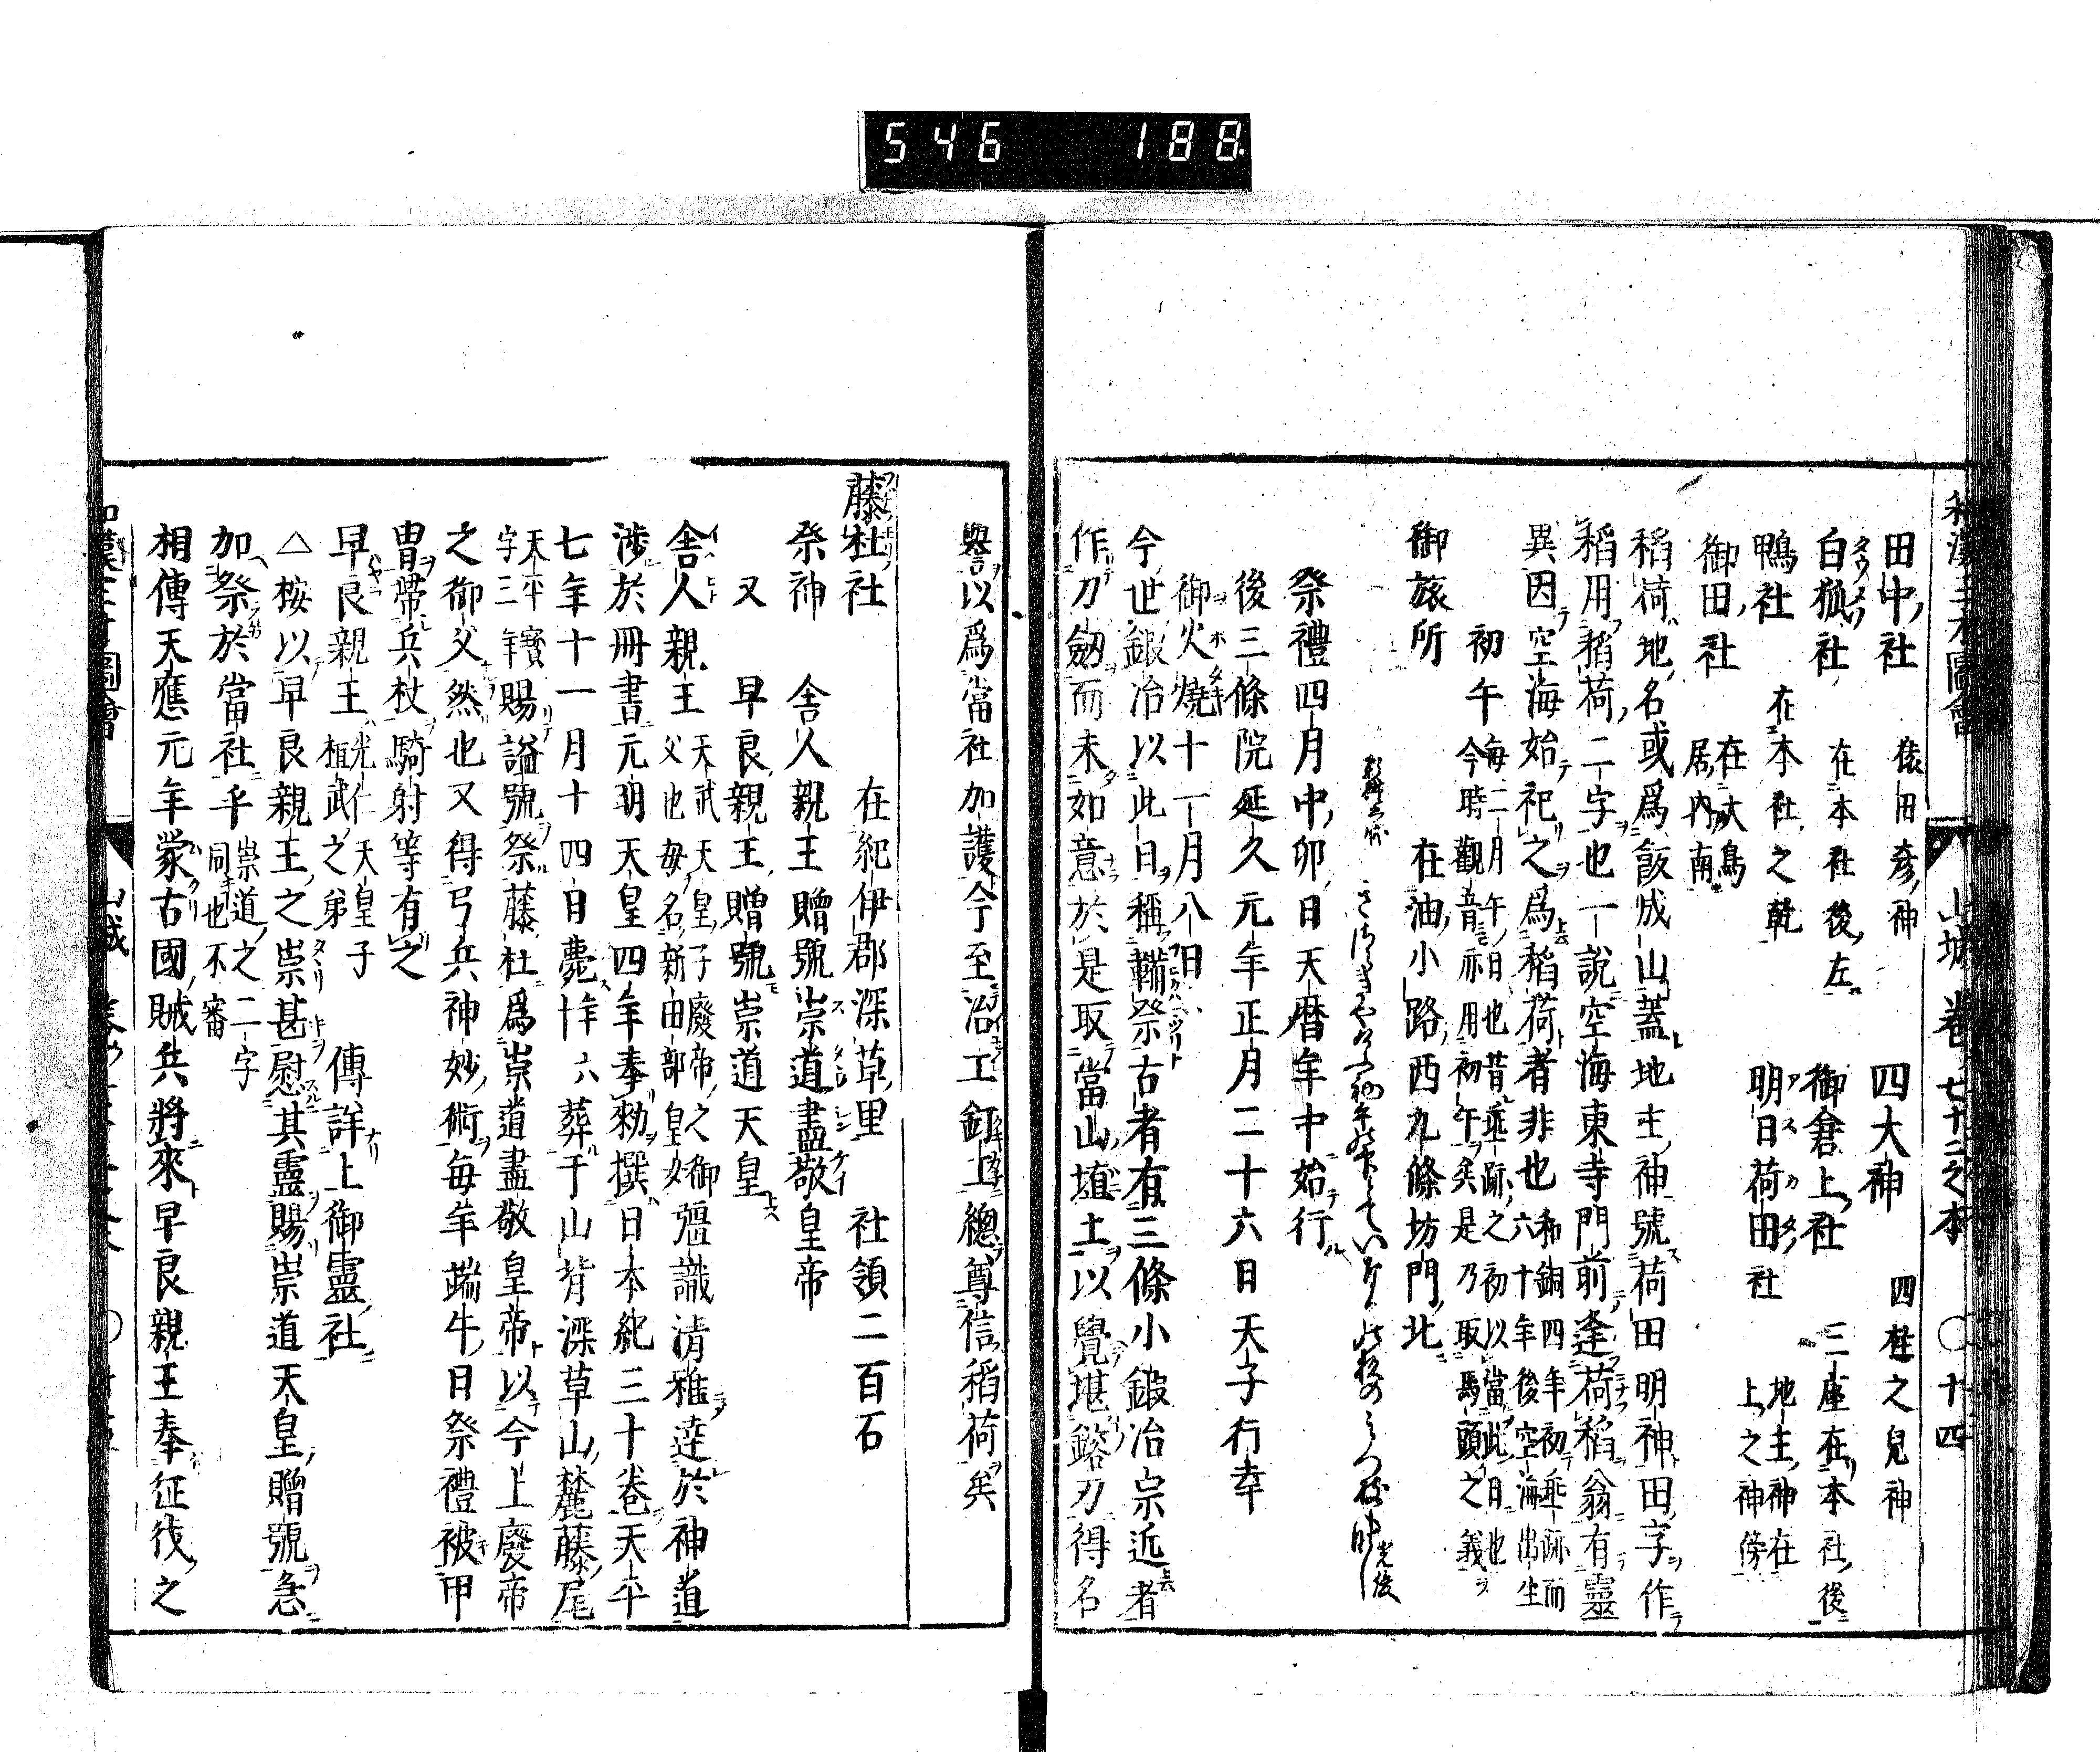 546 188
和漢三才圖會 山城 卷七十二之本 ○十四
田中社 猿田彦神 四大神 四社之兒神
白狐社 在本社後左 御倉上社 三座在本社後
鴨社 在本社之乾 明日荷田社 地主神在上之神傍
御田社 在大鳥居内南
稻荷地名或爲飯成山蓋地主神號荷田明神田字作
稻用稻荷二字也一說空海東寺門前逢荷稻翁有靈
異因空海始祀之爲稻荷者非也 和銅四年初垂跡而六十年後空海出生
初午 毎二月午日也昔垂跡之初以當此日也今時觀音亦用初午矣是乃取馬頭之義
御旅所 在油小路西九條坊門北
祭禮四月中卯日天暦年中始行
後三條院延久元年正月二十六日天子行幸
御火燒十一月八日
今世鍛冶以此日稱鞴祭古者有三條小鍛冶宗近者
作刀劔而未如意於是取當山埴土以覺堪鎔刀得名
譽以爲當社加護今至冶工釭工總尊信稻荷矣
藤杜社 在紀伊郡深草里 社領二百石
祭神 舎人親王贈號崇道盡敬皇帝
又 早良親王贈號崇道天皇
舎人親王 天武天皇子廢帝之御父也母名新田部皇女 彊識清雅達於神道
渉於册書元明天皇四年奉勅撰日本紀三十卷天平
七年十一月十四日薨 六十 葬于山背深草山麓藤尾
天平寳字三年賜謚號祭藤杜爲崇道盡敬皇帝以今上廢帝
之御父然也又得弓兵神妙術毎年端午日祭禮被甲
冑帶兵杖騎射等有之
早良親王 光仁天皇子桓武之弟 傳詳上御靈社
△按以早良親王之崇甚慰其靈賜崇道天皇贈號急
加祭於當社乎 崇道之二字同也不審
相傳天應元年蒙古國賊兵將來早良親王奉征伐之
和漢三才圖會 山城